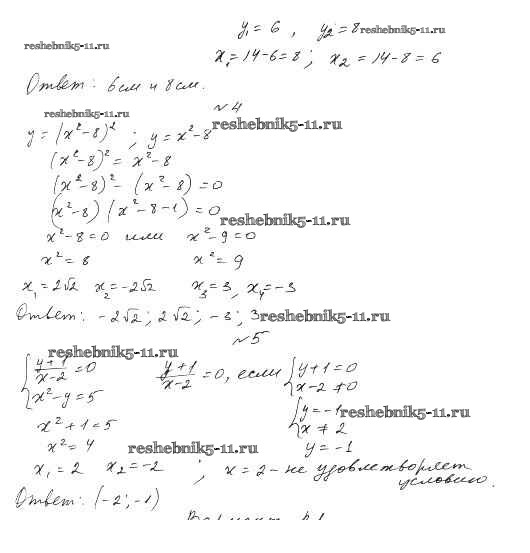 y₁ = 6 , y₂ = 8 reshebnik5-11.ru
reshebnik5-11.ru
x₁ = 14-6 = 8 ; x₂ = 14-8 = 6
Ответ: 6 см и 8 см.
№4
reshebnik5-11.ru
y = (x²-8)² ; y = x²-8 reshebnik5-11.ru
(x²-8)² = x²-8
(x²-8)² - (x²-8) = 0
(x²-8) (x²-8-1) = 0
reshebnik5-11.ru
x²-8=0 или x²-9=0
x² = 8 x² = 9
x₁ = 2√2 x₂ = -2√2 x₃ = 3, x₄ = -3
Ответ: -2√2; 2√2; -3; 3 reshebnik5-11.ru
№5
reshebnik5-11.ru
{ (y+1)/(x-2) = 0 (y+1)/(x-2) = 0, если { y+1=0
{ x²-y=5 { x-2≠0
x²+1=5 { y=-1 reshebnik5-11.ru
{ x≠2
x² = 4 reshebnik5-11.ru y = -1
x₁ = 2 x₂ = -2 ; x = 2 - не удовлетворяет
условию.
Ответ: (-2; -1)